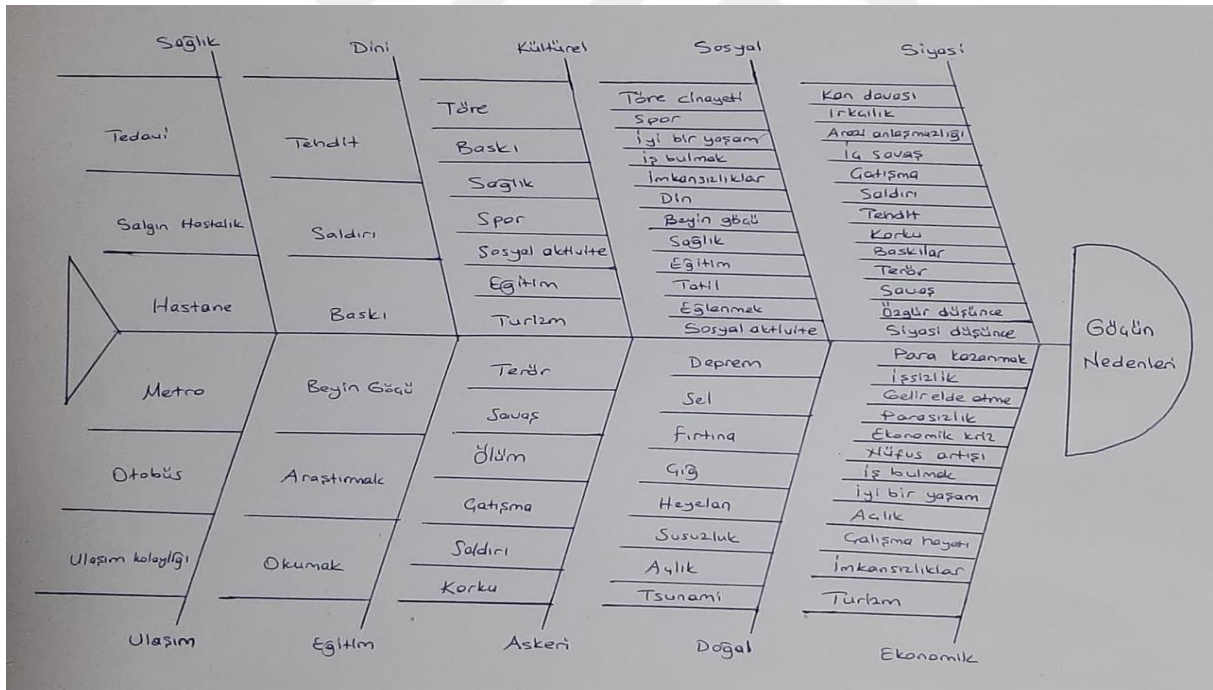 Sağlık
Tedavi
Salgın Hastalık
Hastane
Dini
Tehdit
Saldırı
Baskı
Kültürel
Töre
Baskı
Sağlık
Spor
Sosyal aktivite
Eğitim
Turizm
Sosyal
Töre cinayeti
Spor
İyi bir yaşam
iş bulmak
İmkansızlıklar
Din
Beyin göçü
Sağlık
Eğitim
Tatil
Eğlenmek
Sosyal aktivite
Siyasi
Kan davası
Irkçılık
Arazi anlaşmazlığı
İç savaş
Çatışma
Saldırı
Tehdit
Korku
Baskılar
Terör
Savaş
Özgür düşünce
Siyasi düşünce
Göçün
Nedenleri
Metro
Otobüs
Ulaşım kolaylığı
Ulaşım
Beyin Göçü
Araştırmak
Okumak
Eğitim
Terör
Savaş
Ölüm
Çatışma
Saldırı
Korku
Askeri
Deprem
Sel
Fırtına
Çığ
Heyelan
Susuzluk
Açlık
Tsunami
Doğal
Para kazanmak
İşsizlik
Gelir elde etme
Parasızlık
Ekonomik kriz
Nüfus artışı
iş bulmak
iyi bir yaşam
Açlık
Çalışma hayatı
İmkansızlıklar
Turizm
Ekonomik